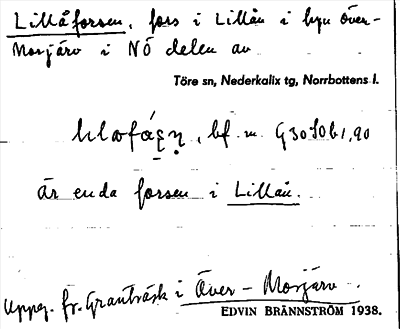 Lillåforsen, fors i Lillån i byn Över-
Morjärv i NÖ delen av
Töre sn, Nederkalix tg, Norrbottens l.
bf. m.
Är enda forsen i Lillån.
Uppg. fr. Granträsk i Över-Morjärv.
EDVIN BRÄNNSTRÖM 1938.